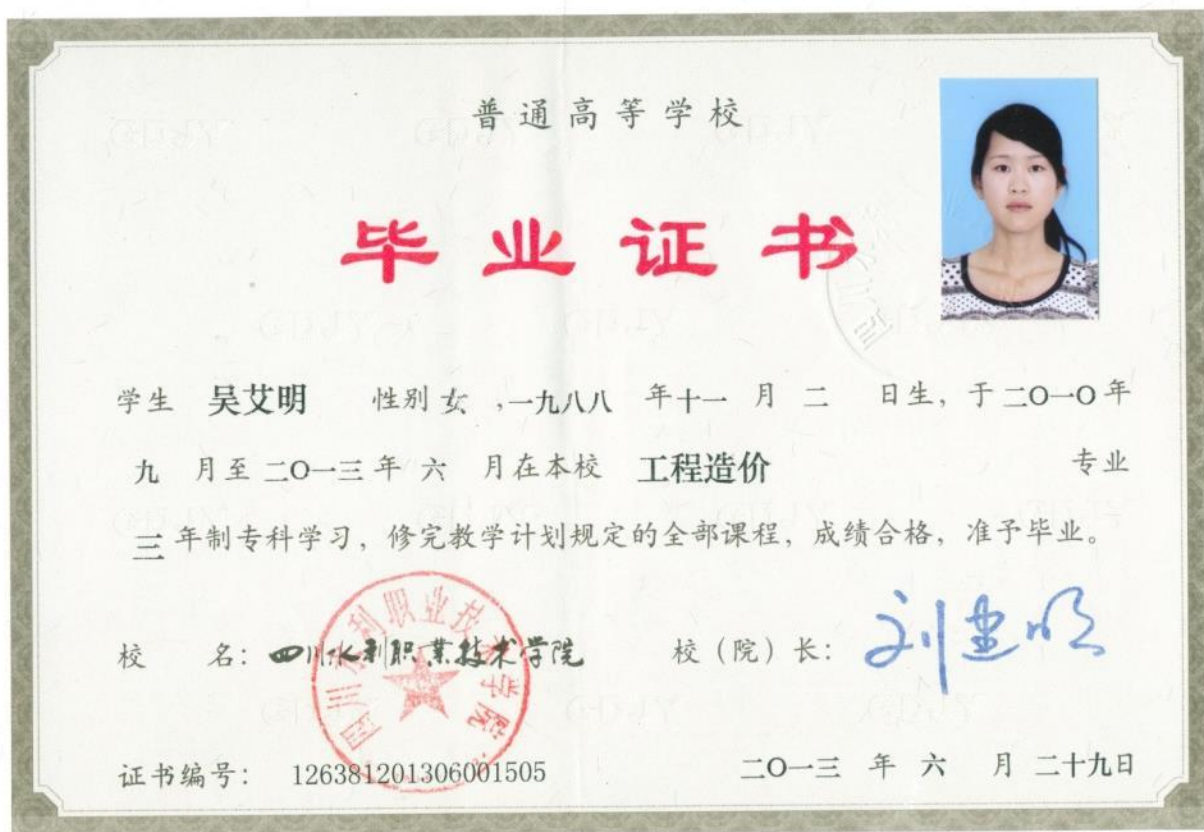 普通高等学校
毕业证书
学生 吴艾明 性别 女 ,一九八八 年十一 月 二 日生, 于二O一O年
九 月至 二O一三 年 六 月在本校 工程造价 专业
三 年制专科学习, 修完教学计划规定的全部课程, 成绩合格, 准予毕业。
校 名: 四川水利职业技术学院 校 (院) 长:
四川水利职业技术学院
证书编号: 126381201306001505 二O一三 年 六 月 二十九日